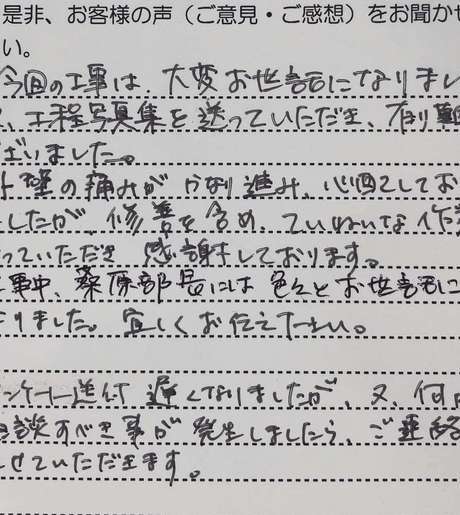 是非、お客様の声（ご意見・ご感想）をお聞かせ
い。
今回の工事は、大変お世話になりまし
、工程写真集を送っていただき、有り難
ざいました。
外壁の痛みが かなり進み、心配してお
ましたが、修善を含め、ていねいな作業
っていただき 感謝しております。
事中、桑原部長には 色々と お世話に
りました。宜しくお伝え下さい。
ンケート送付 遅くなりましたが、又、何
談すべき事が 発生しましたら、ご連絡
せていただきます。